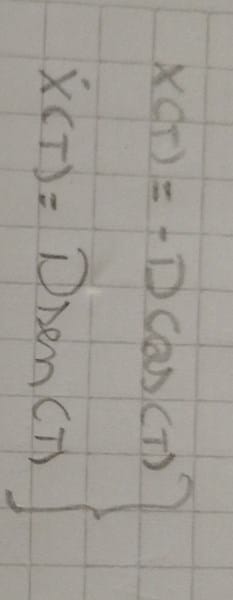 X(T) = -D Cos(T)
Ẋ(T) = D sen(T)